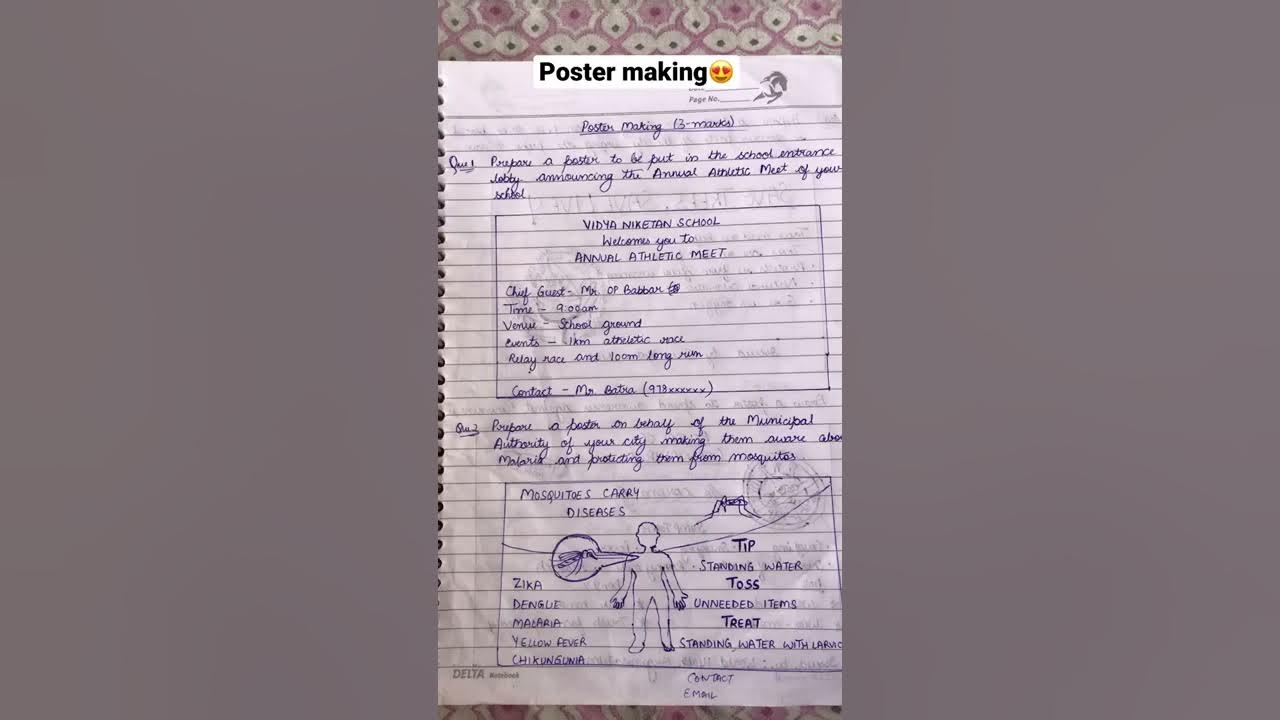 Poster making😍
Page No.
Poster Making (3-marks)
Que 1 Prepare a poster to be put in the school entrance
lobby announcing the Annual Athletic Meet of your
school.
VIDYA NIKETAN SCHOOL
Welcomes you to
ANNUAL ATHLETIC MEET
Chief Guest - Mr. OP Babbar
Time - 9:00am
Venue - School ground
Events - 1km atheletic race
Relay race and 100m long run
Contact - Mr. Batra (978xxxxxx)
Que 2 Prepare a poster on behalf of the Municipal
Authority of your city making them aware abo
Malaria and protecting them from mosquitos.
MOSQUITOES CARRY
DISEASES
TIP
· STANDING WATER
ZIKA TOSS
DENGUE UNNEEDED ITEMS
MALARIA TREAT
YELLOW FEVER STANDING WATER WITH LARVIC
CHIKUNGUNIA
DELTA Notebook
CONTACT
EMAIL